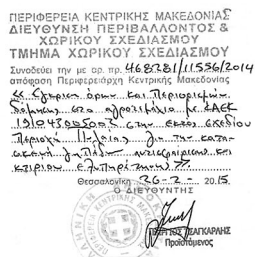 ΠΕΡΙΦΕΡΕΙΑ ΚΕΝΤΡΙΚΗΣ ΜΑΚΕΔΟΝΙΑΣ
ΔΙΕΥΘΥΝΣΗ ΠΕΡΙΒΑΛΛΟΝΤΟΣ &
ΧΩΡΙΚΟΥ ΣΧΕΔΙΑΣΜΟΥ
ΤΜΗΜΑ ΧΩΡΙΚΟΥ ΣΧΕΔΙΑΣΜΟΥ
Συνοδεύει την με αρ. πρ. 468281/11536/2014
απόφαση Περιφερειάρχη Κεντρικής Μακεδονίας
« Έγκριση όρων και Περιορισμών
δόμησης στο αγροτεμάχιο με ΚΑΕΚ
στην εκτός σχεδίου
περιοχή για την κατα-
σκευή γηπέδων αντισφαίρισης και
κτιρίου εξυπηρέτησης ».
Θεσσαλονίκη 26-2- 2015
Ο ΔΙΕΥΘΥΝΤΗΣ
ΤΣΑΓΚΑΡΛΗΣ
Προϊστάμενος